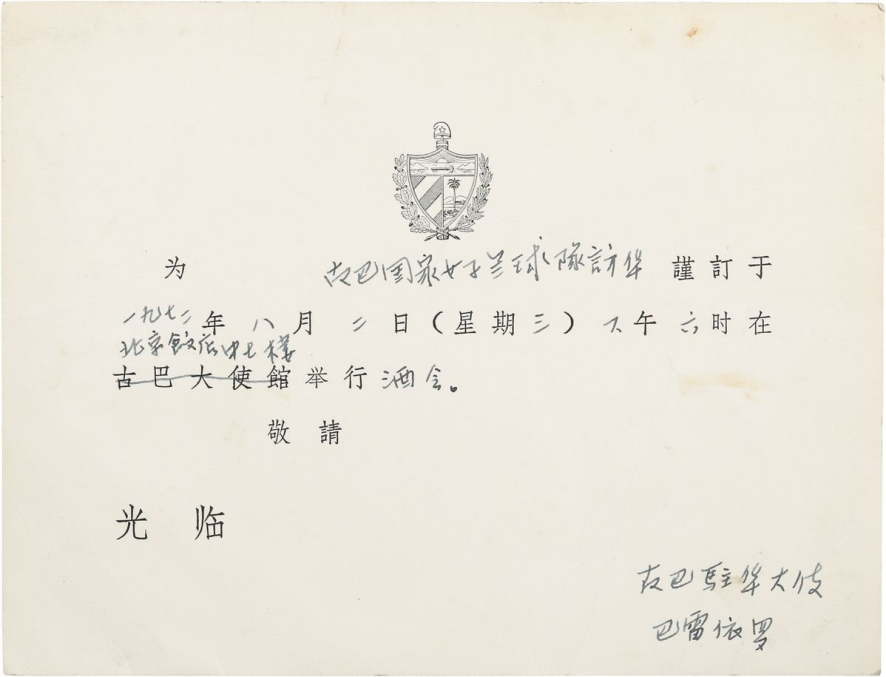 为 古巴国家女子兰球队訪华 謹訂于
一九七二年八月二日(星期三)下午六时在
北京飯店中七楼
古巴大使館举行酒会。
敬請
光临
古巴駐华大使
巴雷依罗